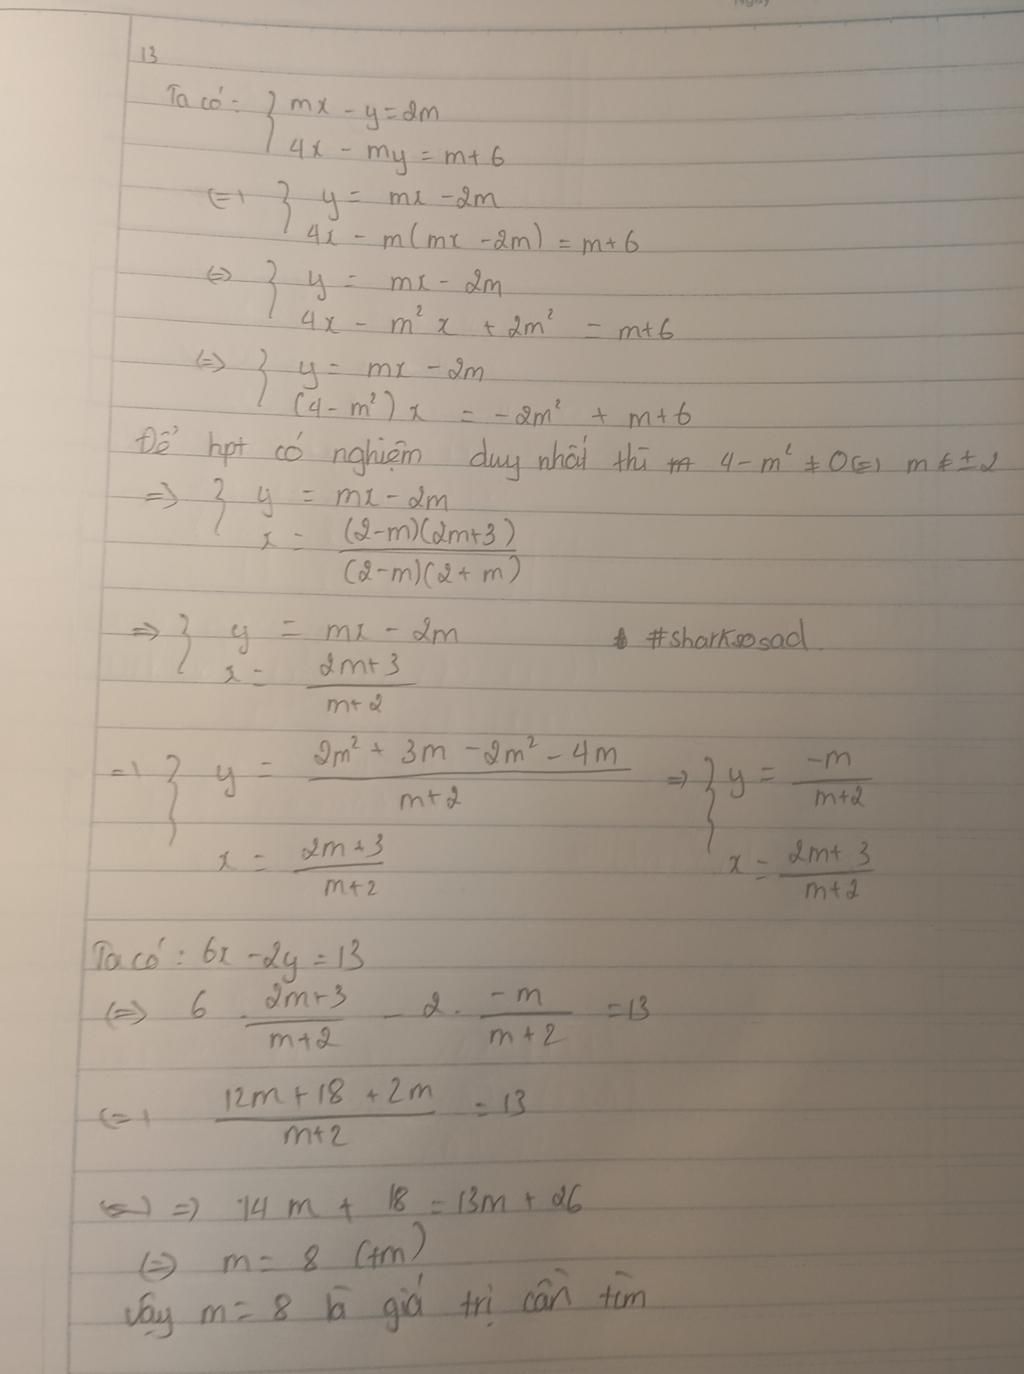 13
Ta có: { mx - y = 2m
4x - my = m+6
(=) { y = mx - 2m
4x - m(mx - 2m) = m+6
(=) { y = mx - 2m
4x - m² x + 2m² = m+6
(=) { y = mx - 2m
(4 - m²) x = -2m² + m+6
Để hpt có nghiệm duy nhất thì 4 - m² ≠ 0 (=) m ≠ ± 2
=) { y = mx - 2m
x = (2-m)(2m+3) / (2-m)(2+m)
=) { y = mx - 2m #sharksosad
x = 2m+3 / m+2
=) { y = 2m² + 3m - 2m² - 4m / m+2 =) { y = -m / m+2
x = 2m+3 / m+2 x = 2m+3 / m+2
Ta có: 6x - 2y = 13
(=) 6 . 2m+3 / m+2 - 2 . -m / m+2 = 13
(=) 12m + 18 + 2m / m+2 = 13
=) 14m + 18 = 13m + 26
(=) m = 8 (tm)
Vậy m = 8 là giá trị cần tìm